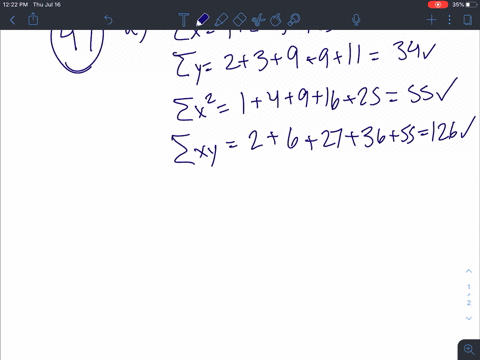 12:22 PM Thu Jul 16
35%
Σy = 2+3+9+9+11 = 34✓
Σx² = 1+4+9+16+25 = 55✓
Σxy = 2+6+27+36+55=126✓
1
2